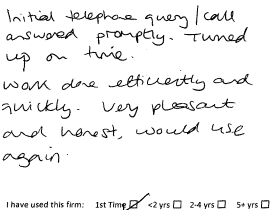 Initial telephone query/call
answered promptly. Turned
up on time.
Work done efficiently and
quickly. Very pleasant
and honest, would use
again.
I have used this firm: 1st Time ☑ <2 yrs ☐ 2-4 yrs ☐ 5+ yrs ☐